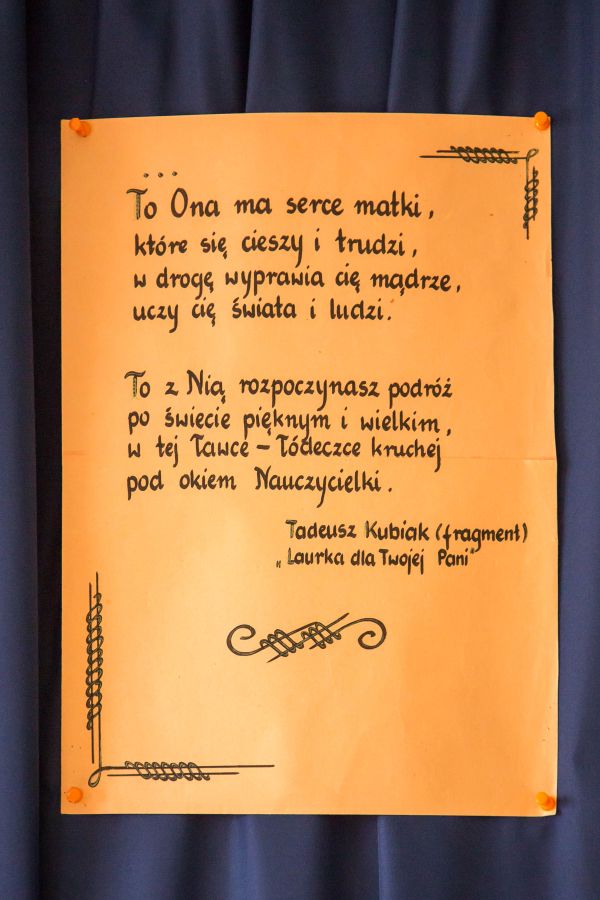 ...
To Ona ma serce matki,
które się cieszy i trudzi,
w drogę wyprawia cię mądrze,
uczy cię świata i ludzi.
To z Nią rozpoczynasz podróż
po świecie pięknym i wielkim,
w tej ławce – łódeczce kruchej
pod okiem Nauczycielki.
Tadeusz Kubiak (fragment)
„Laurka dla Twojej Pani"